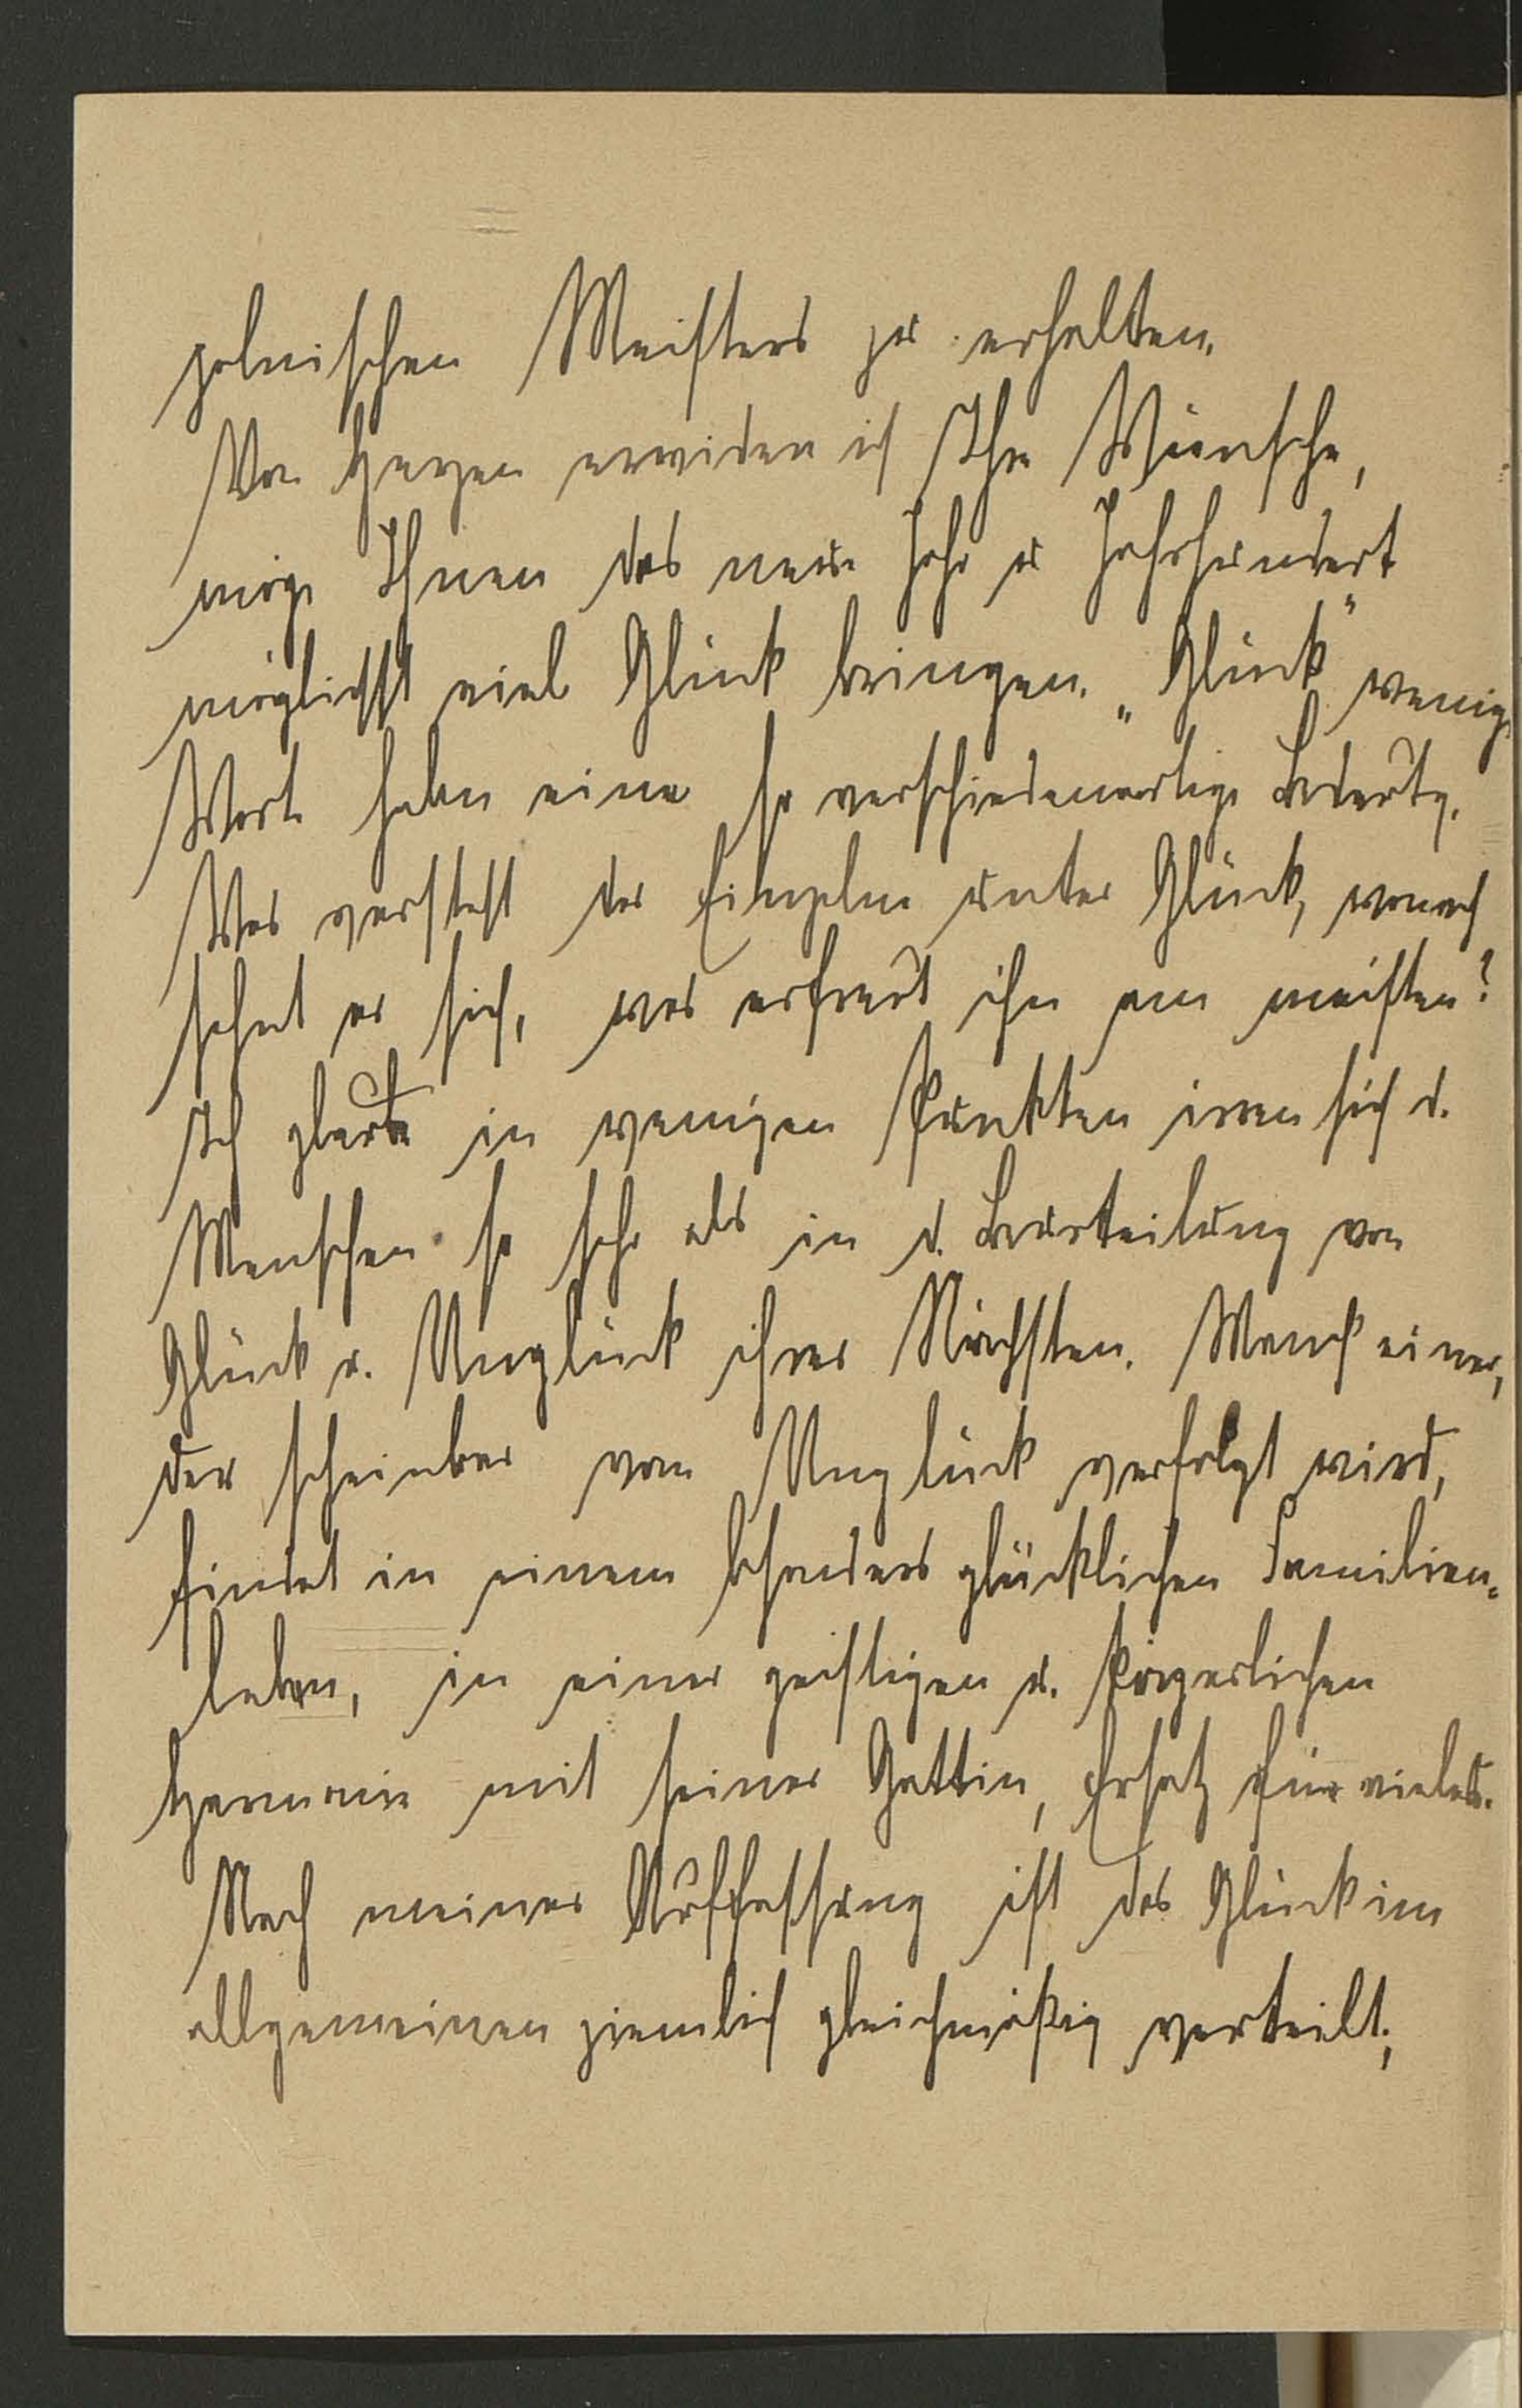 polnischen Meisters zu erhalten.
Von Herzen erwidere ich Ihre Wünsche,
möge Ihnen das neue Jahr u Jahrhundert
möglichst viel Glück bringen. „Glück" wenig
Worte haben eine so verschiedenartige Bedeutg.
Was versteht der Einzelne unter Glück, wonach
sehnt er sich, was erfreut ihn am meisten?
Ich glaube in wenigen Punkten irren sich d.
Menschen so sehr als in d. Beurteilung von
Glück u. Unglück ihrer Nächsten. Manch einer,
der scheinbar vom Unglück verfolgt wird,
findet in einem besonders glücklichen Familien-
leben, in einer geistigen u. körperlichen
Harmonie mit seiner Gattin, Ersatz für vieles.
Nach meiner Auffassung ist das Glück im
allgemeinen ziemlich gleichmäßig verteilt;